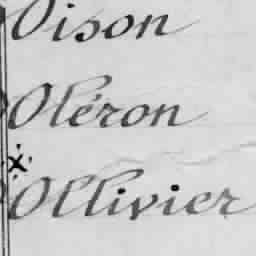 Oison
Oléron
x
Ollivier